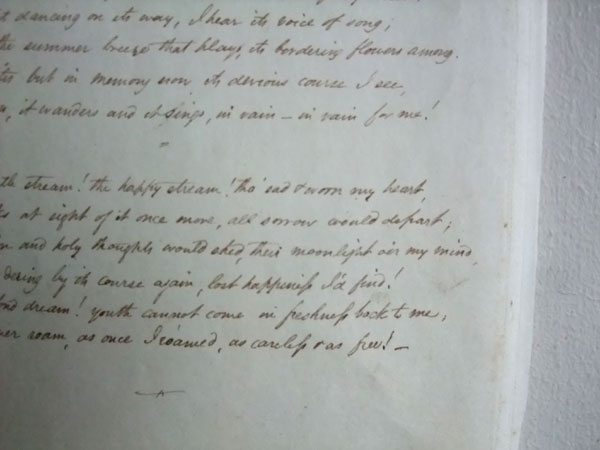 dancing on its way, I hear its voice of song;
the summer breeze that plays, its bordering flowers among.
but in memory now its devious course I see,
it wanders and it sings, in vain – in vain for me!
stream! the happy stream! tho' sad & worn my heart,
at sight of it once more, all sorrow would depart;
and holy thoughts would shed their moonlight o'er my mind,
by its course again, lost happiness I'd find!
dream! youth cannot come in freshness back to me,
roam, as once I roamed, as careless & as free! –